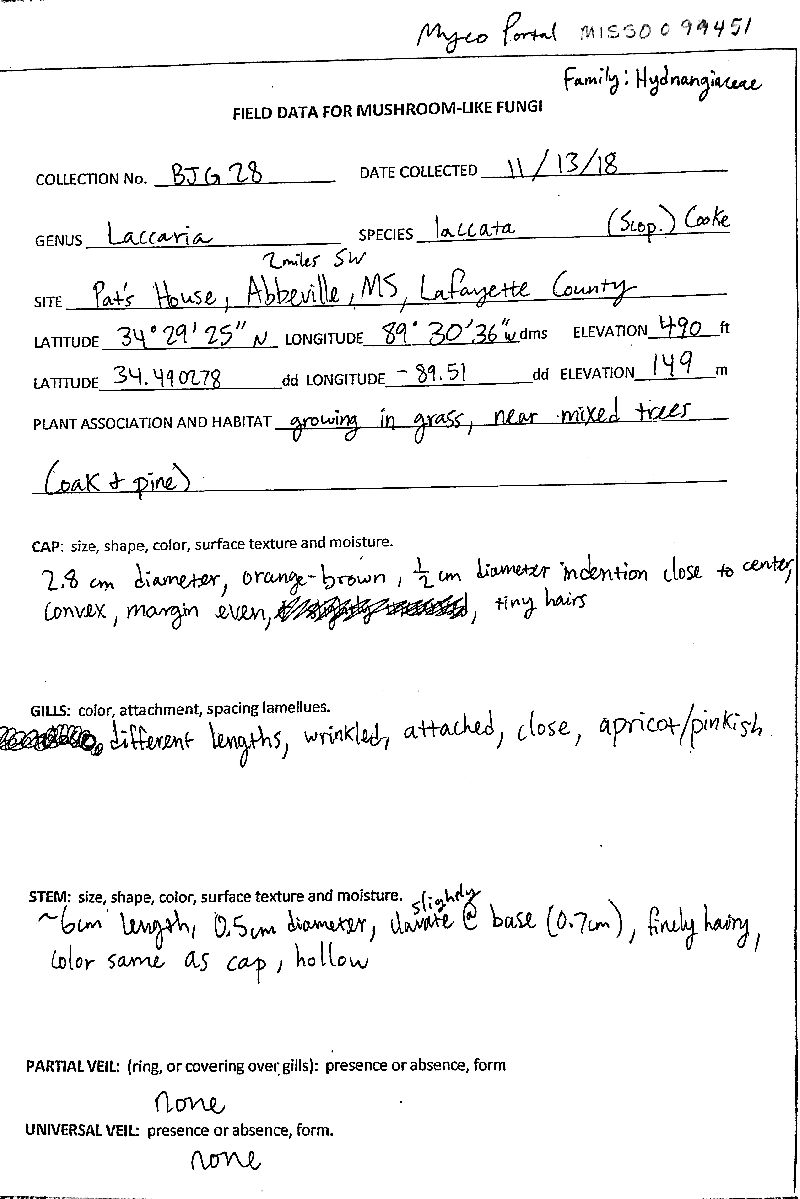 Myco Portal MISS0099451
Family: Hydnangiaceae
FIELD DATA FOR MUSHROOM-LIKE FUNGI
COLLECTION No. BJG 28 DATE COLLECTED 11/13/18
GENUS Laccaria SPECIES laccata (Scop.) Cooke
2miles SW
SITE Pat's House, Abbeville, MS, Lafayette County
LATITUDE 34° 29' 25" N LONGITUDE 89° 30' 36" W dms ELEVATION 490 ft
LATITUDE 34.490278 dd LONGITUDE -89.51 dd ELEVATION 149 m
PLANT ASSOCIATION AND HABITAT growing in grass, near mixed trees
(oak + pine)
CAP: size, shape, color, surface texture and moisture.
2.8 cm diameter, orange-brown, 1/2 cm diameter indention close to center,
convex, margin even, , tiny hairs
GILLS: color, attachment, spacing lamellues.
different lengths, wrinkled, attached, close, apricot/pinkish
STEM: size, shape, color, surface texture and moisture.
slightly
~6cm length, 0.5cm diameter, clavate @ base (0.7cm), finely hairy,
color same as cap, hollow
PARTIAL VEIL: (ring, or covering over gills): presence or absence, form
none
UNIVERSAL VEIL: presence or absence, form.
none